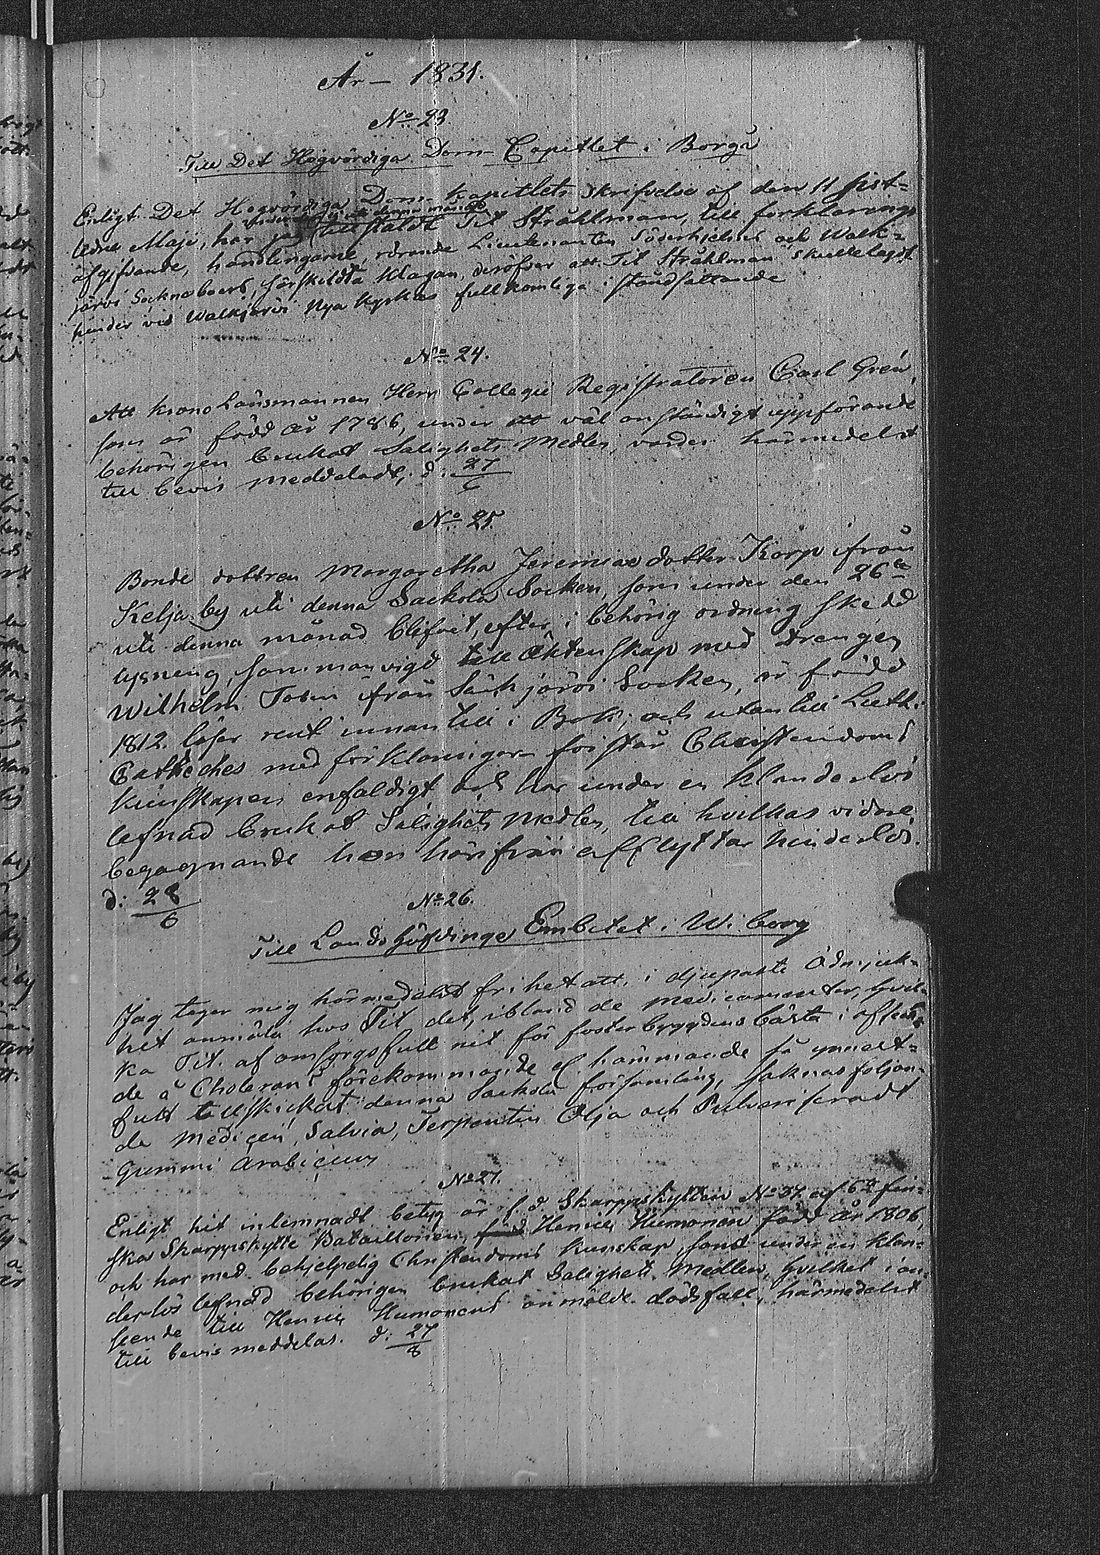 År — 1831.
No 23
Till Det Högvördiga Dom Capitlet i Borgå
Enligt Det Högvördiga Dom Kapitlets skrifvelse af den 11 sist-
ledne Maji, har jag tillstäldt Tit Stråhlman, till förklarings
afgifvande, handlingarne, rörande Lieutenanten Söderhjelms och Walk-
järvi Sockneboers särskildta Klagan, deröfver att Tit Stråhlman skulle lagt
hinder vid Walkjärvi Nya Kyrkas fullkomliga i ståndsättande
No 24.
Att krono Länsmannen Herr Collegii Registratoren Carl Grén,
som är född år 1786, under ett väl anständigt uppförande
behörigen brukat Salighets Medlen, varder härmedelst
till bevis meddeladt, d: 27/6
No 25.
Bonde dottren Margaretha Jeremiae dotter Korp ifrån
Kelja by uti denna Sackola Socken, som under den 26te
uti denna månad blifvit, efter i behörig ordning skedd
lysning, sammanvigd till äktenskap med Drengen
Wilhelm Toivi ifrån Säkjärvi Socken, är född
1812. läser rent innantill i Bok; och utantill Luth:
Catheches med förklaningar förstår Christendoms
kunskapen enfaldigt och har under en klanderlös
lefnad brukat Salighets Medlen, till hvilkas vidare
begagnande hon härifrån afflyttar hinderlös.
d: 28/6
No 26.
Till Landshöfdinge Embetet i Wiborg
Jag tager mig härmedelst frihet att, i djupaste ödmjuk-
het anmäla hos Tit, det, ibland de medicamenter, hvil-
ka Tit. af omsorgsfull nit för fosterbygdens bästa i afseen-
de å Cholerans förekommande och hämmande så ymnigt-
fullt tillskickat denna Sackola församling, saknas följan-
de Medicin, Salvia, Terpentin Olja och Pulveriseradt
Gummi Arabicum
No 27.
Enligt hit inlemnadt betyg är f. d. Skarppskytten No 37 af 6te fin-
ska Skarppskytte Bataillonen, Henric Humonen född år 1806,
och har med behjelpelig Christendoms kunskap, samt under en klan-
derlös lefnad behörigen brukat Salighets Medlen, hvilket i an-
seende till Henric Humonens anmälde dödsfall, härmedelst
till bevis meddelas. d: 27/8